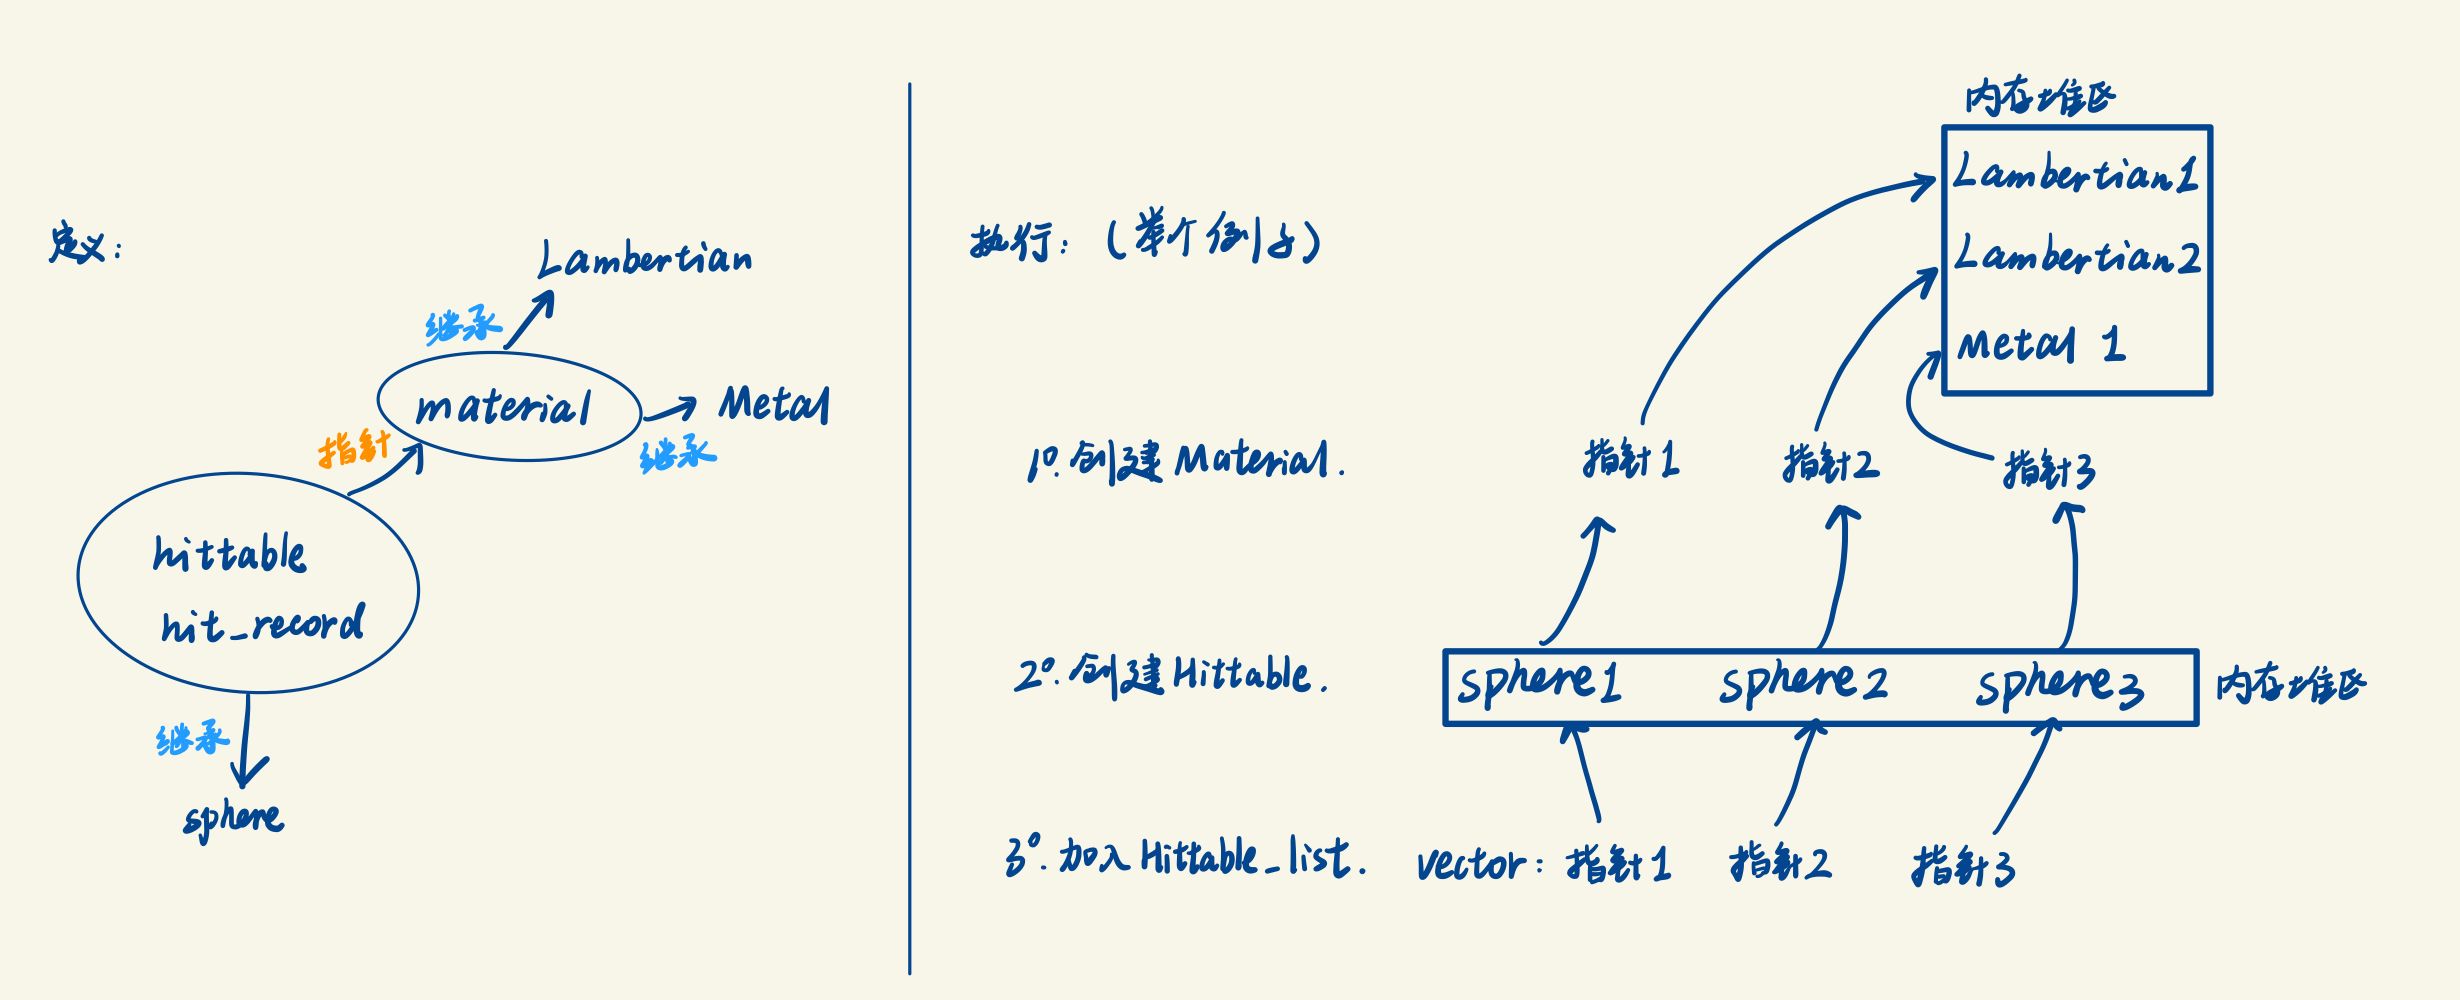 定义:
Lambertian
继承
material
Metal
继承
指针
hittable
hit_record
继承
sphere
执行: (举个例子)
内存堆区
Lambertian1
Lambertian2
Metal 1
1°. 创建 Material.
指针1 指针2 指针3
2°. 创建 Hittable.
sphere1 sphere2 sphere3
内存堆区
3°. 加入 Hittable_list.
vector: 指针1 指针2 指针3